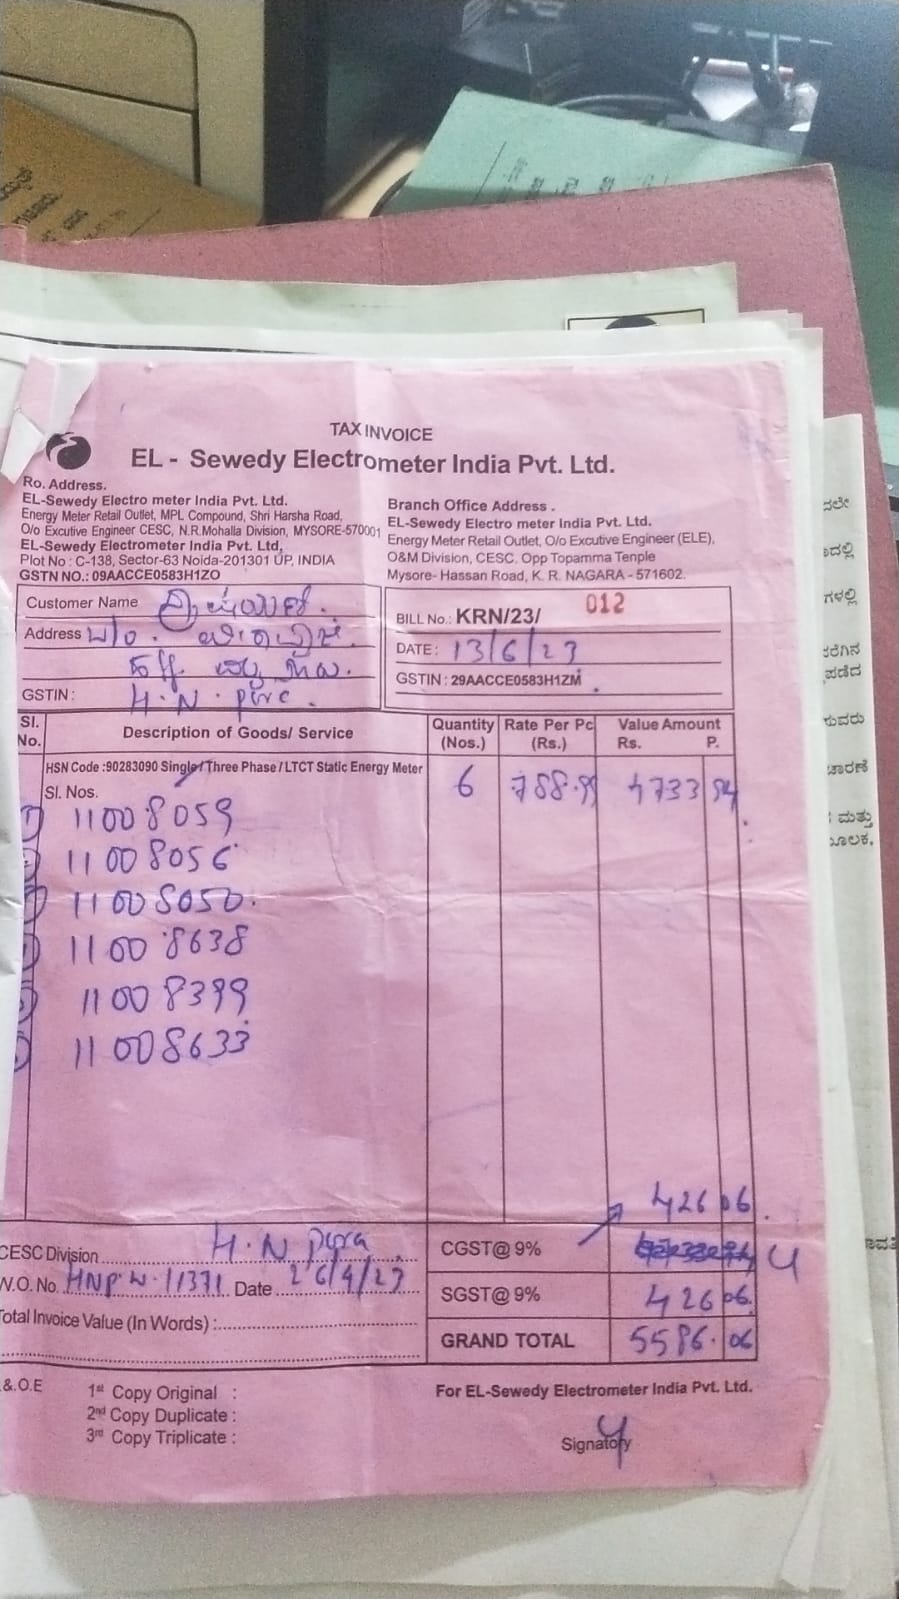 TAX INVOICE
EL - Sewedy Electrometer India Pvt. Ltd.
Ro. Address.
EL-Sewedy Electro meter India Pvt. Ltd.
Energy Meter Retail Outlet, MPL Compound, Shri Harsha Road,
O/o Excutive Engineer CESC, N.R.Mohalla Division, MYSORE-570001
EL-Sewedy Electrometer India Pvt. Ltd,
Plot No : C-138, Sector-63 Noida-201301 UP, INDIA
GSTN NO.: 09AACCE0583H1ZO
Branch Office Address .
EL-Sewedy Electro meter India Pvt. Ltd.
Energy Meter Retail Outlet, O/o Excutive Engineer (ELE),
O&M Division, CESC. Opp Topamma Tenple
Mysore- Hassan Road, K. R. NAGARA - 571602.
Customer Name
Address W/o.
GSTIN : H.N. pure.
BILL No.: KRN/23/ 012
DATE : 13/6/23
GSTIN : 29AACCE0583H1ZM
Sl. No. Description of Goods/ Service Quantity (Nos.) Rate Per Pc (Rs.) Value Amount Rs. P.
HSN Code :90283090 Single/Three Phase / LTCT Static Energy Meter
Sl. Nos. 6 788.99 4733 94
11008059
11008056
11008050.
11008638
11008399
11008633
426 06
CESC Division H.N pura CGST@ 9%
W.O. No. HNP.W.11371 Date 26/4/23
SGST@ 9% 426 06
Total Invoice Value (In Words) :
GRAND TOTAL 5586.06
&.O.E
1st Copy Original :
2nd Copy Duplicate :
3rd Copy Triplicate :
For EL-Sewedy Electrometer India Pvt. Ltd.
Signatory